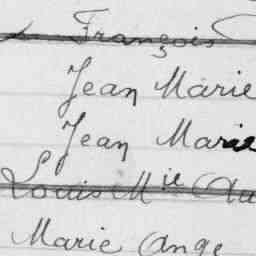 François
Jean Marie
Jean Marie
Louis Mie Au
Marie Ange